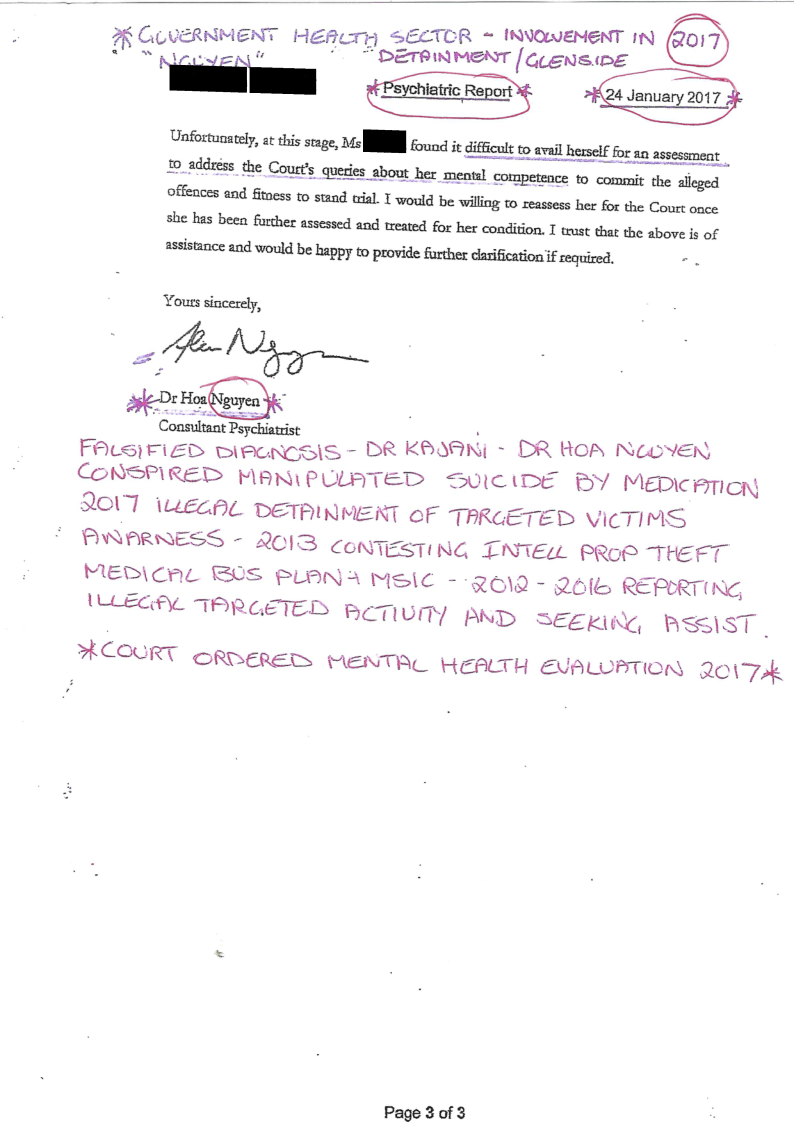 * GOVERNMENT HEALTH SECTOR - INVOLVEMENT IN 2017
"NGUYEN" DETAINMENT/GLENSIDE
*Psychiatric Report* *24 January 2017*
Unfortunately, at this stage, Ms found it difficult to avail herself for an assessment
to address the Court's queries about her mental competence to commit the alleged
offences and fitness to stand trial. I would be willing to reassess her for the Court once
she has been further assessed and treated for her condition. I trust that the above is of
assistance and would be happy to provide further clarification if required.
Yours sincerely,
*Dr Hoa Nguyen*
Consultant Psychiatrist
FALSIFIED DIAGNOSIS - DR KAJANI - DR HOA NGUYEN
CONSPIRED MANIPULATED SUICIDE BY MEDICATION
2017 ILLEGAL DETAINMENT OF TARGETED VICTIMS
AWARNESS - 2013 CONTESTING INTELL PROP THEFT
MEDICAL BUS PLAN + MSIC - 2012 - 2016 REPORTING
ILLEGAL TARGETED ACTIVITY AND SEEKING ASSIST.
*COURT ORDERED MENTAL HEALTH EVALUATION 2017*
Page 3 of 3